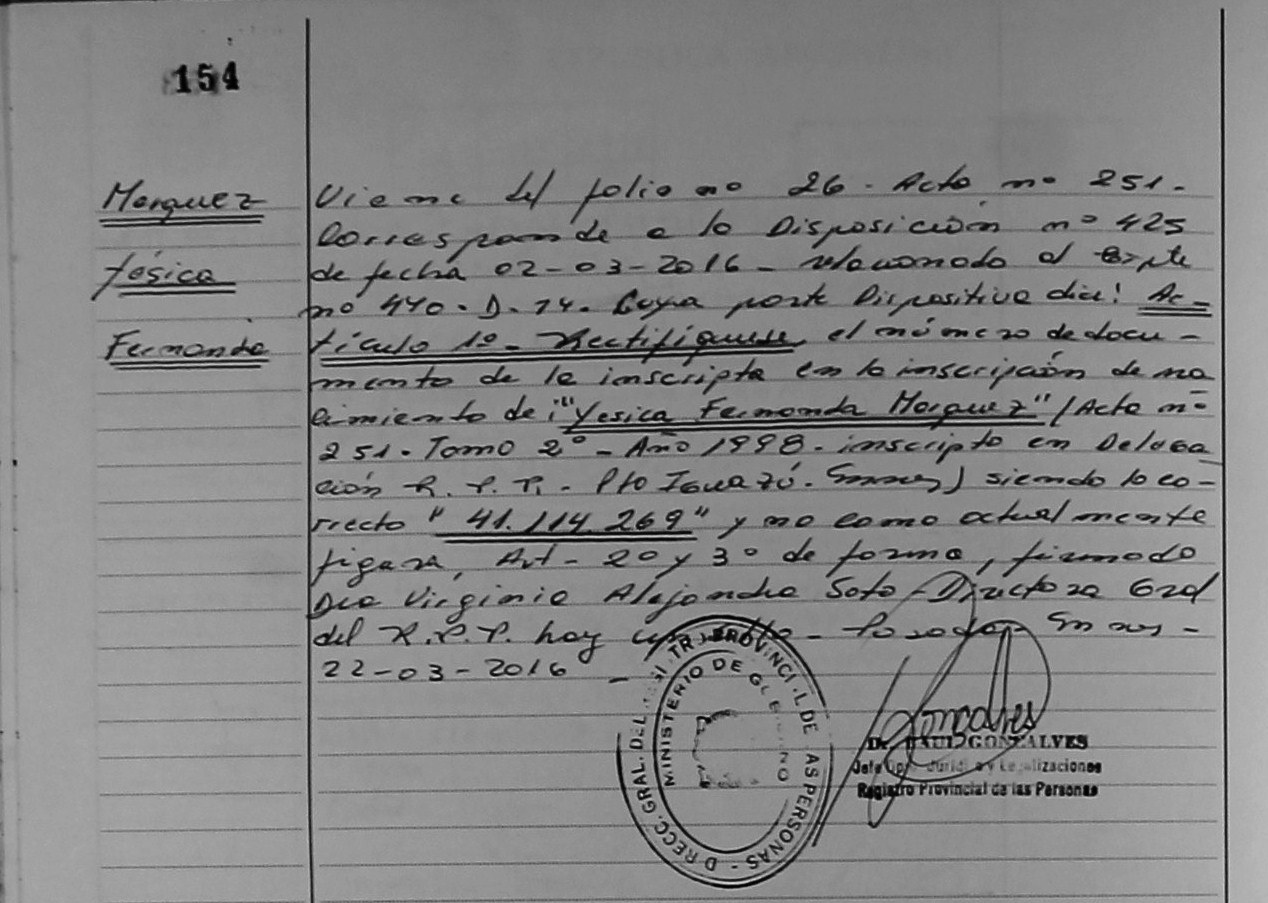 154
Marquez
Yésica
Fernanda
Viene del folio nº 26 - Acta nº 251.
Corresponde a la Disposición nº 425
de fecha 02-03-2016 - relacionado al Expte
nº 440. D. 14. Cuya parte Dispositiva dice: Ar-
tículo 1º - Rectifíquese, el número de docu-
mento de la inscripta en la inscripción de na
cimiento de: "Yesica Fernanda Marquez" (Acta nº
251. Tomo 2º - Año 1998 - inscripta en Delega
ción R. P. P. - Pto Iguazú. Snnes) siendo lo co-
rrecto "41.114.269" y no como actualmente
figura, Art - 2º y 3º de forma, firmado
Dra Virginia Alejandra Soto - Directora Gral
del R.P.P. hoy - Posadas Snnes -
22-03-2016 -
DIRECC. GRAL. DEL REGISTRO PROVINCIAL DE LAS PERSONAS -
MINISTERIO DE GOBIERNO
Goncalves
Dr. RAUL GONZALVES
Jefe Dpto. Jurídica y Legalizaciones
Registro Provincial de las Personas